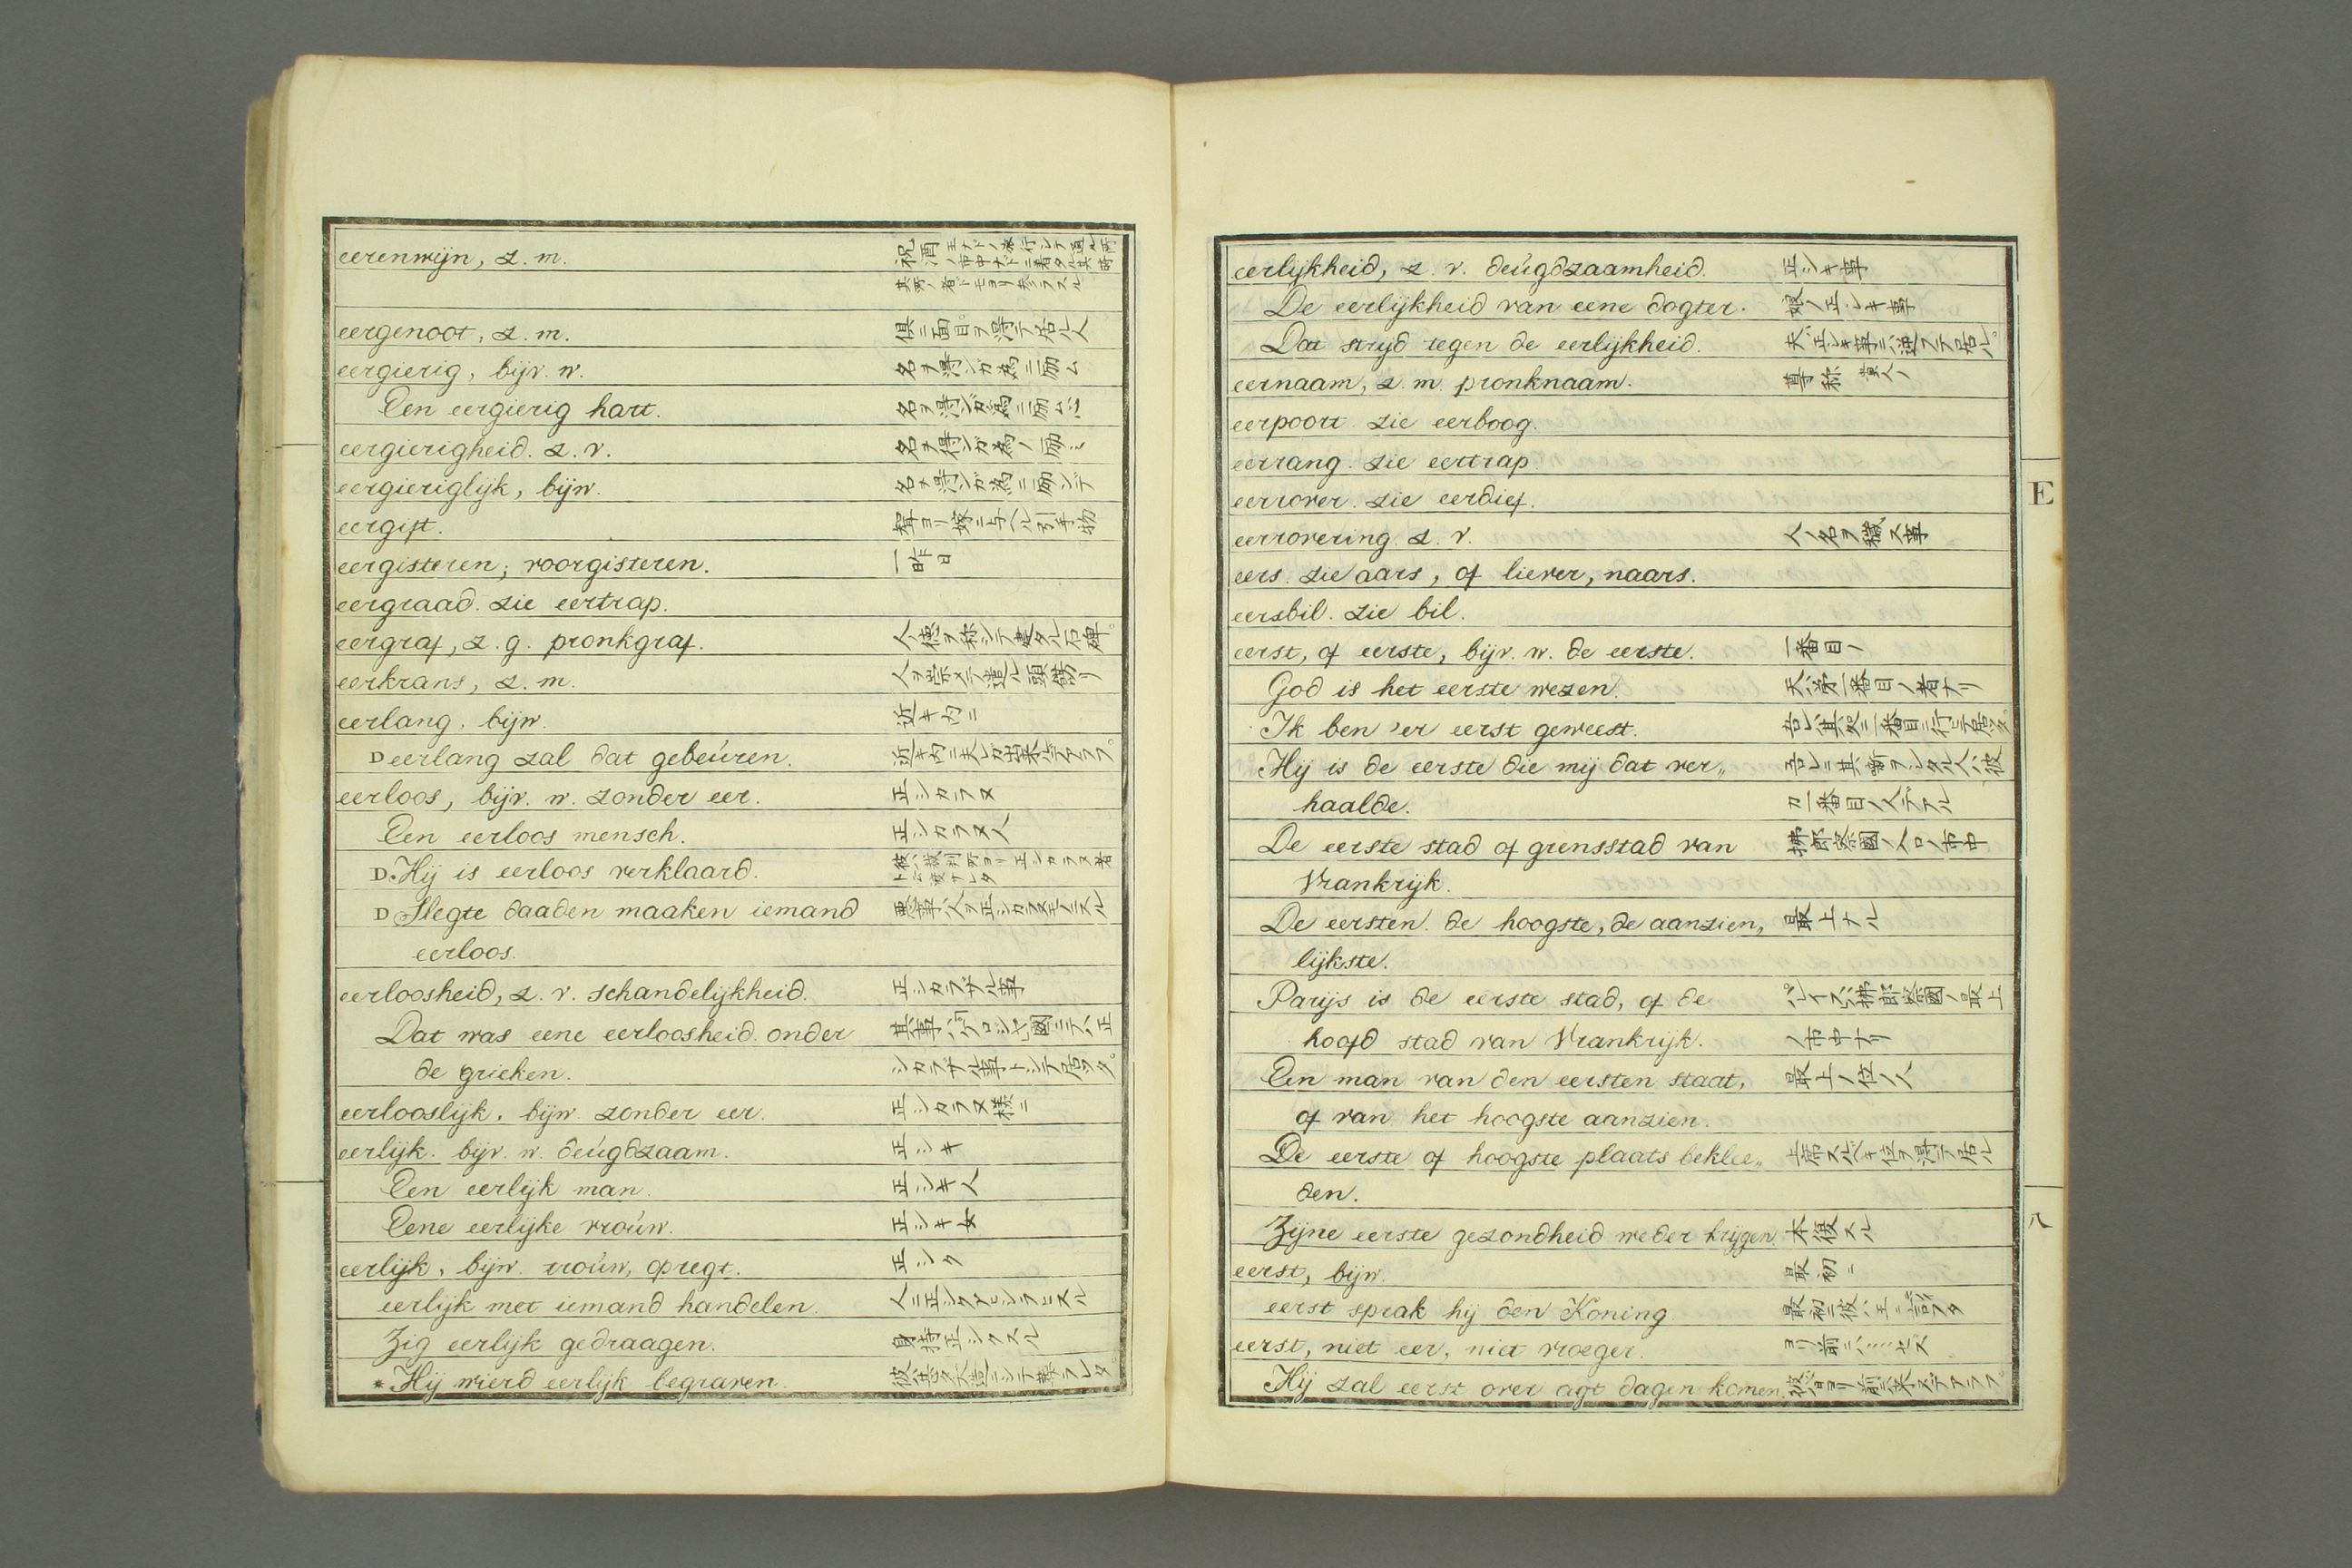 eerenwijn, z. m. 祝酒
eergenoot, z. m. 倶ニ面目ヲ得テ居ル人
eergierig, bijv. w. 名ヲ得ンガ為ニ励ム
Een eergierig hart. 名ヲ得ンガ為ニ励ム心
eergierigheid. z. v. 名ヲ得ンガ為ノ励ミ
eergieriglijk, bijw. 名ヲ得ンガ為ニ励ンデ
eergift. 聟ヨリ嫁ニ与ヘル引手物
eergisteren; voorgisteren. 一昨日
eergraad. zie eertrap.
eergraf, z. g. pronkgraf. 人ノ徳ヲ称シテ建タル石碑。
eerkrans, z. m. 人ヲ崇メテ遣ル頭ノ餝リ
eerlang, bijw. 近キ内ニ
D eerlang zal dat gebeúren. 近キ内ニ夫レガ出来ルデアラフ。
eerloos, bijv. w. zonder eer. 正シカラヌ
Een eerloos mensch. 正シカラヌ人
D Hij is eerloos verklaard.
D Slegte daaden maaken iemand 悪事ハ人ヲ正シカラヌモノニスル
eerloos.
eerloosheid, z. v. schandelijkheid. 正シカラザル事
Dat was eene eerloosheid onder
de grieken. シカラザル事トシテ居ツタ。
eerlooslijk, bijw. zonder eer. 正シカラヌ様ニ
eerlijk. bijv. w. deúgdzaam. 正シキ
Een eerlijk man. 正シキ人
Eene eerlijke vroúw. 正シキ女
eerlijk, bijw. troúw, opregt. 正シク
eerlijk met iemand handelen. 人ニ正シクアシラヒスル
Zig eerlijk gedraagen. 身持正シクスル
* Hij wierd eerlijk begraven.
eerlijkheid, z. v. deúgdzaamheid. 正シキ事
De eerlijkheid van eene dogter. 娘ノ正シキ事
Dat strijd tegen de eerlijkheid. 夫ハ正シキ事ニ逆フテ居ル。
eernaam, z. m. pronknaam. 尊称
eerpoort. zie eerboog.
eerrang. zie eertrap.
eerrover. zie eerdief.
E
eerrovering. z. v. 人ノ名ヲ穢ス事
eers. zie aars, of liever, naars.
eersbil. zie bil.
eerst, of eerste, bijv. w. de eerste. 一番目ノ
God is het eerste wezen. 天ハ第一番目ノ者ナリ
Ik ben 'er eerst geweest.
Hij is de eerste die mij dat ver„
haalde. ガ一番目ノ人デアル
De eerste stad of grensstad van 拂郎察國ノ入口ノ市中
Vrankrijk.
De eersten. de hoogste, de aanzien„ 最上ナル
lijkste.
Parijs is de eerste stad, of de パレイスハ拂郎察國ノ最上
hoofd stad van Vrankrijk. ノ市中ナリ
Een man van den eersten staat, 最上ノ位ノ人
of van het hoogste aanzien.
De eerste of hoogste plaats beklee„ 上席スベキ位ヲ得テ居ル
den.
Zijne eerste gezondheid weder krijgen. 本復スル
eerst, bijw. 最初ニ
eerst sprak hij den Koning 最初ニ彼ハ王ニ言フタ
eerst, niet eer, niet vroeger. ヨリ前ニハ……セズ
Hij zal eerst over agt dagen komen.